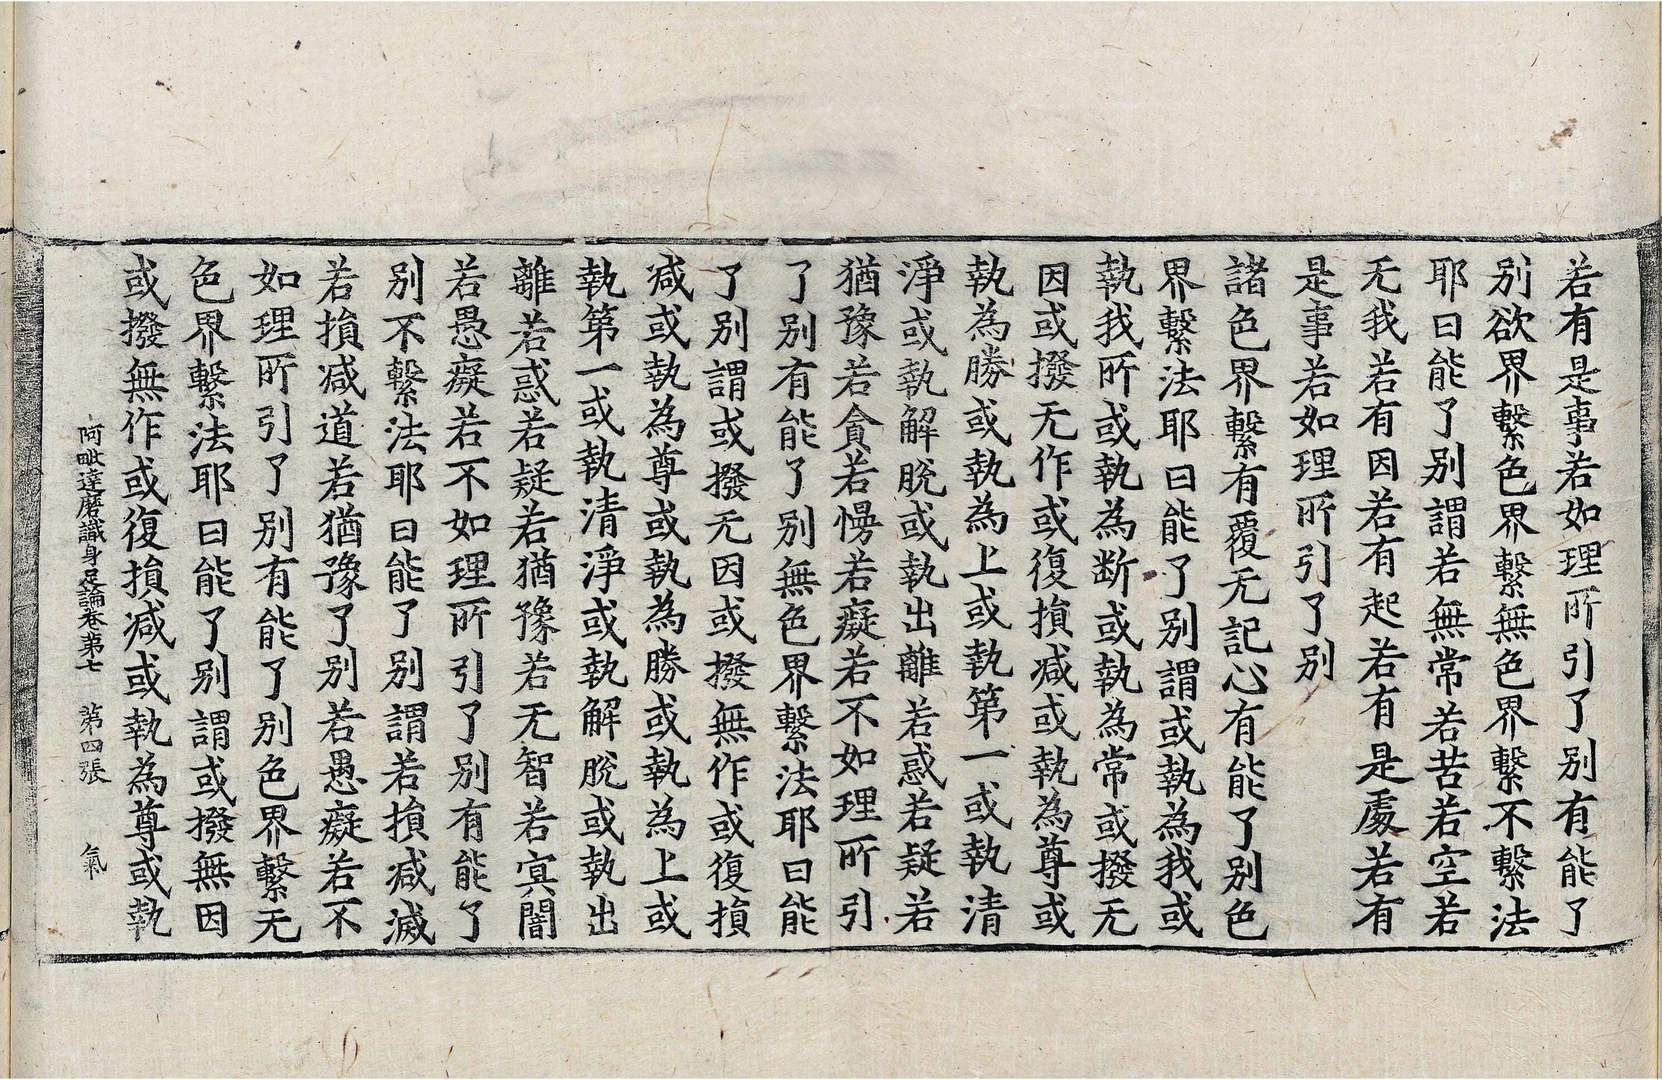 若有是事若如理所引了別有能了
別欲界繫色界繫無色界繫不繫法
耶曰能了別謂若無常若苦若空若
无我若有因若有起若有是處若有
是事若如理所引了別
諸色界繫有覆无記心有能了別色
界繫法耶曰能了別謂或執為我或
執我所或執為断或執為常或撥无
因或撥无作或復損減或執為尊或
執為勝或執為上或執第一或執清
淨或執解脫或執出離若惑若疑若
猶豫若貪若慢若癡若不如理所引
了別有能了別無色界繫法耶曰能
了別謂或撥无因或撥無作或復損
减或執為尊或執為勝或執為上或
執第一或執清淨或執解脫或執出
離若惑若疑若猶豫若无智若冥闇
若愚癡若不如理所引了別有能了
別不繫法耶曰能了別謂若損减滅
若損减道若猶豫了別若愚癡若不
如理所引了別有能了別色界繫无
色界繫法耶曰能了別謂或撥無因
或撥無作或復損减或執為尊或執
阿毗達磨識身足論卷第七 第四張 氣